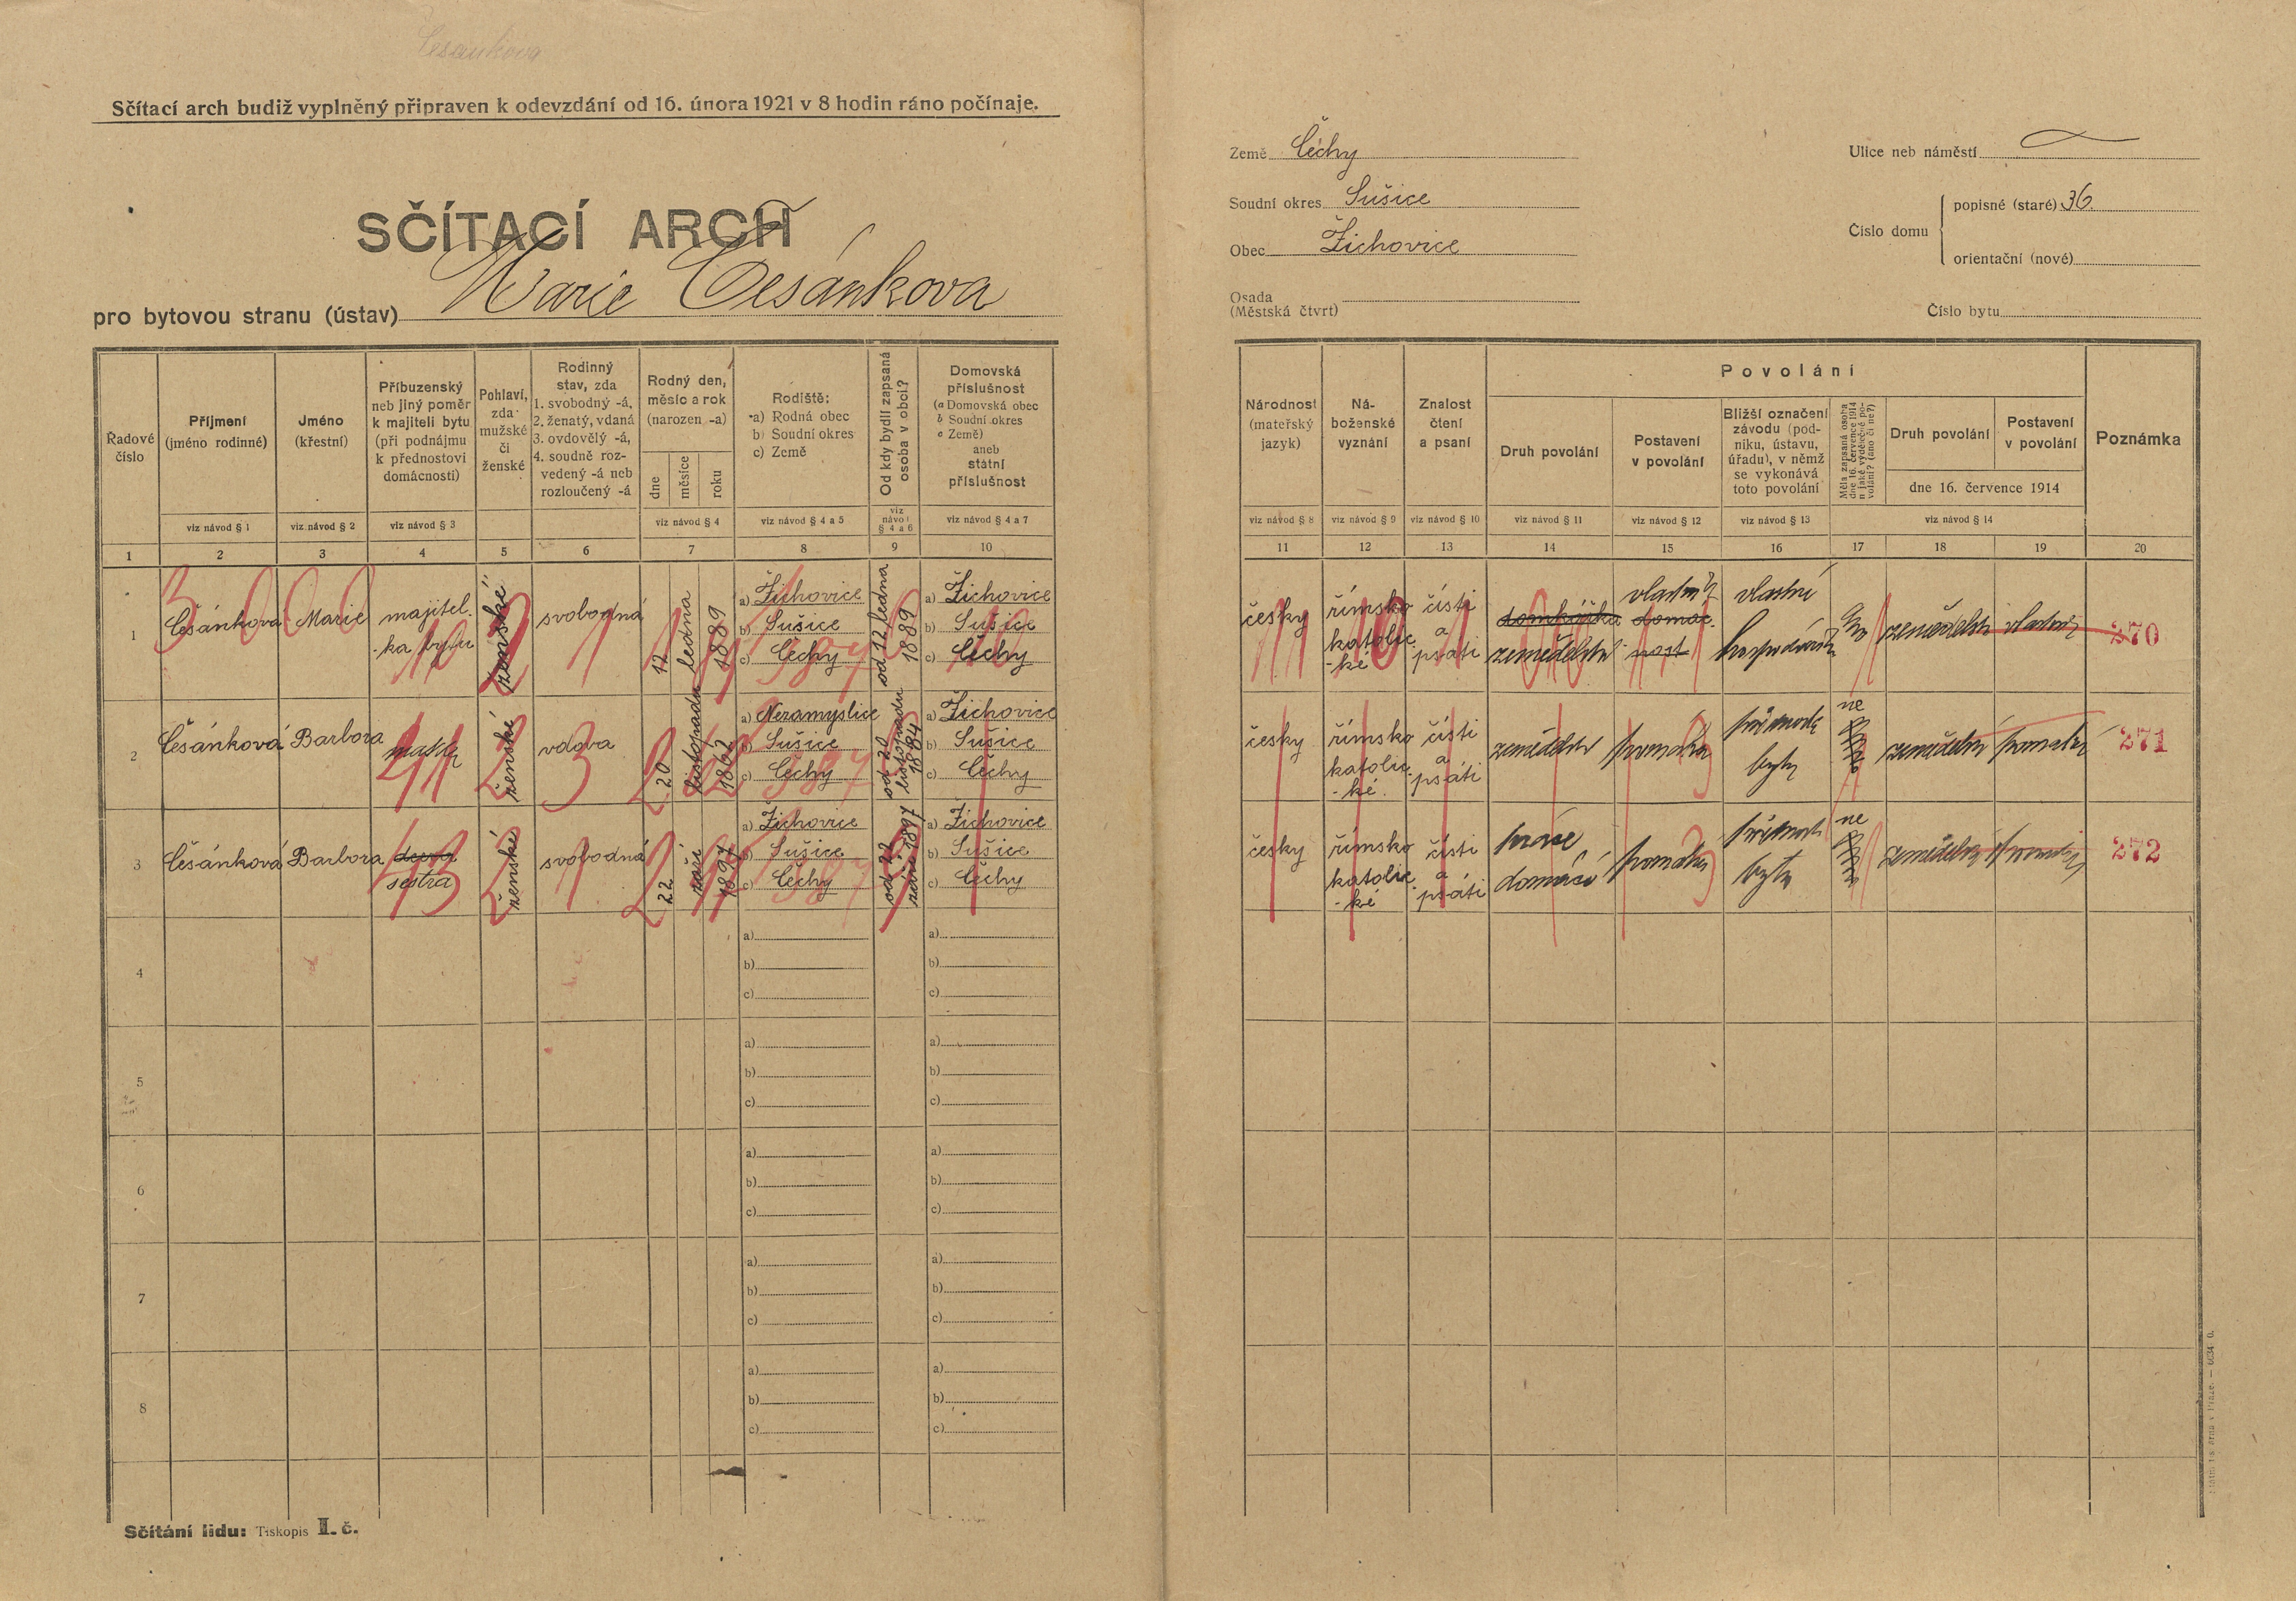 Česankova
Sčítací arch budiž vyplněný připraven k odevzdání od 16. února 1921 v 8 hodin ráno počínaje.
SČÍTACÍ ARCH
pro bytovou stranu (ústav) Marie Česánkova
Země Čéchy
Soudní okres Sušice
Obec Žichovice
Osada
(Městská čtvrt)
Ulice neb náměstí
Číslo domu
popisné (staré) 36.
orientační (nové)
Číslo bytu
Řadové
číslo
Příjmení
(jméno rodinné)
Jméno
(křestní)
Příbuzenský
neb jiný poměr
k majiteli bytu
(při podnájmu
k přednostovi
domácnosti)
Pohlaví,
zda
mužské
či
ženské
Rodinný
stav, zda
1. svobodný -á,
2. ženatý, vdaná
3. ovdovělý -á,
4. soudně roz-
vedený -á neb
rozloučený -á
Rodný den,
měsíc a rok
(narozen -a)
dne
měsíce
roku
Rodiště:
a) Rodná obec
b) Soudní okres
c) Země
Od kdy bydlí zapsaná
osoba v obci?
Domovská
příslušnost
(a Domovská obec
b Soudní okres
c Země)
aneb
státní
příslušnost
viz návod § 1
viz návod § 2
viz návod § 3
viz návod § 4
viz návod § 4 a 5
viz
návod
§ 4 a 6
viz návod § 4 a 7
1 2 3 4 5 6 7 8 9 10
Národnost
(mateřský
jazyk)
Ná-
boženské
vyznání
Znalost
čtení
a psaní
Povolání
Druh povolání
Postavení
v povolání
Bližší označení
závodu (pod-
niku, ústavu,
úřadu), v němž
se vykonává
toto povolání
Měla zapsaná osoba
dne 16. července 1914
n jaké výdělečné po-
volání? (ano či ne?)
Druh povolání
Postavení
v povolání
dne 16. července 1914
Poznámka
viz návod § 8
viz návod § 9
viz návod § 10
viz návod § 11
viz návod § 12
viz návod § 13
viz návod § 14
11 12 13 14 15 16 17 18 19 20
1
Češánková
Marie
majitel.
-ka bytu
ženské
svobodná
12
ledna
1889
a) Žichovice
b) Sušice
c) Čechy
od 12 ledna
1889
a) Žichovice
b) Sušice
c) Čechy
česky
římsko
katolic
-ké
čísti
a
psáti
domkářka
zemědelství
domác-
nost
vlastní
270
2
Češánková
Barbora
matka
ženské
vdova
20
listopadu
1862
a) Nezamyslice
b) Sušice
c) Čechy
od 20
listopadu
1884
a) Žichovice
b) Sušice
c) Čechy
česky
římsko
katolic.
-ké.
čísti
a
psáti
byty
ne
271
3
Češánková
Barbora
dcera
sestra
ženské
svobodná
22
září
1897
a) Žichovice
b) Sušice
c) Čechy
od 22
září 1897
a) Žichovice
b) Sušice
c) Čechy
česky
římsko
katolic.
-ké
čísti
a
psáti
práce
domácí
bytu
ne
272
4
a)
b)
c)
a)
b)
c)
5
a)
b)
c)
a)
b)
c)
6
a)
b)
c)
a)
b)
c)
7
a)
b)
c)
a)
b)
c)
8
a)
b)
c)
a)
b)
c)
Sčítání lidu: Tiskopis I. č.